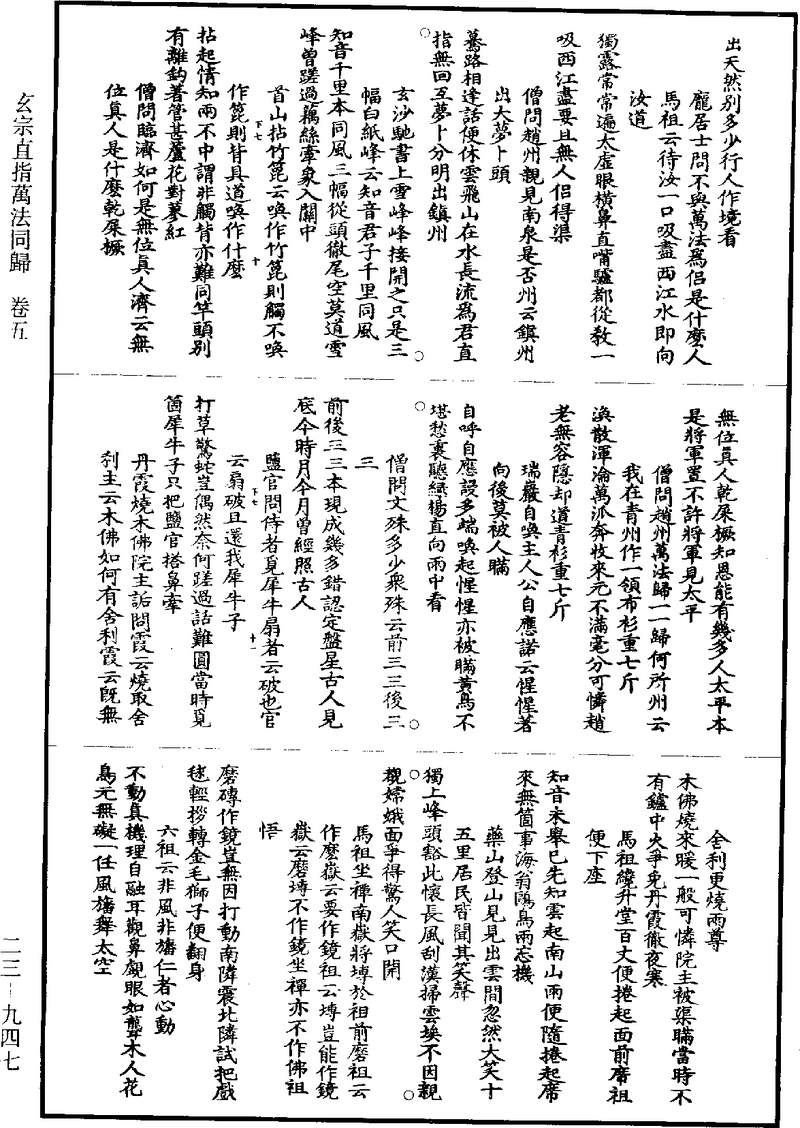 出天然別多少行人作境看
龐居士問不與萬法爲侶是什麼人
馬祖云待汝一口吸盡西江水即向
汝道
獨露常常遍太虛眼橫鼻直嘴驢都從教一
吸西江盡要且無人侶得渠
僧問趙州親見南泉是否州云鎮州
出大蘿蔔頭
驀路相逢話便休雲飛山在水長流爲君直
指無回互蘿蔔分明出鎮州
○
玄沙馳書上雪峰峰接開之只是三
幅白紙峰云知音君子千里同風
○
知音千里本同風三幅從頭徹尾空莫道雪
峰曾蹉過藕絲牽象入關中
首山拈竹篦云喚作竹篦則觸不喚
作篦則背具道喚作什麼
下七
十
拈起情知兩不中謂非觸背亦難同竿頭別
有離鈎著管甚蘆花對蓼紅
僧問臨濟如何是無位真人濟云無
位真人是什麼乾屎橛
無位真人乾屎橛知恩能有幾多人太平本
是將軍置不許將軍見太平
僧問趙州萬法歸一一歸何所州云
我在青州作一領布衫重七斤
渙散渾淪萬派奔收來元不滿毫分可憐趙
老無容隱却道青衫重七斤
瑞巖自喚主人公自應諾云惺惺著
向後莫被人瞞
自呼自應設多端喚起惺惺亦被瞞黃鳥不
堪愁裏聽綠楊直向雨中看
○
僧問文殊多少衆殊云前三三後三
三
○
前後三三本現成幾多錯認定盤星古人見
底今時月今月曾經照古人
鹽官問侍者覓犀牛扇者云破也官
云扇破且還我犀牛子
下七
十一
打草驚蛇豈偶然奈何蹉過話難圓當時覓
箇犀牛子只把鹽官搭鼻牽
丹霞燒木佛院主詬問霞云燒取舍
利主云木佛如何有舍利霞云既無
舍利更燒兩尊
木佛燒來暖一般可憐院主被渠瞞當時不
有鑪中火爭免丹霞徹夜寒
馬祖纔升堂百丈便捲起面前席祖
便下座
知音未舉已先知雲起南山雨便隨捲起席
來無箇事海翁鷗鳥兩忘機
藥山登山見見出雲間忽然大笑十
五里居民皆聞其笑聲
○
獨上峰頭豁此懷長風刮漢掃雲埃不因親
覩嫦娥面爭得驚人笑口開
○
馬祖坐禪南嶽將塼於祖前磨祖云
作麼嶽云要作鏡祖云塼豈能作鏡
嶽云磨塼不作鏡坐禪亦不作佛祖
悟
磨磚作鏡豈無因打動南隣震北隣試把戲
毬輕拶轉金毛獅子便翻身
六祖云非風非旛仁者心動
不動真機理自融耳觀鼻觀眼如聾木人花
鳥元無礙一任風旛舞太空
玄宗直指萬法同歸　卷五
二三—九四七